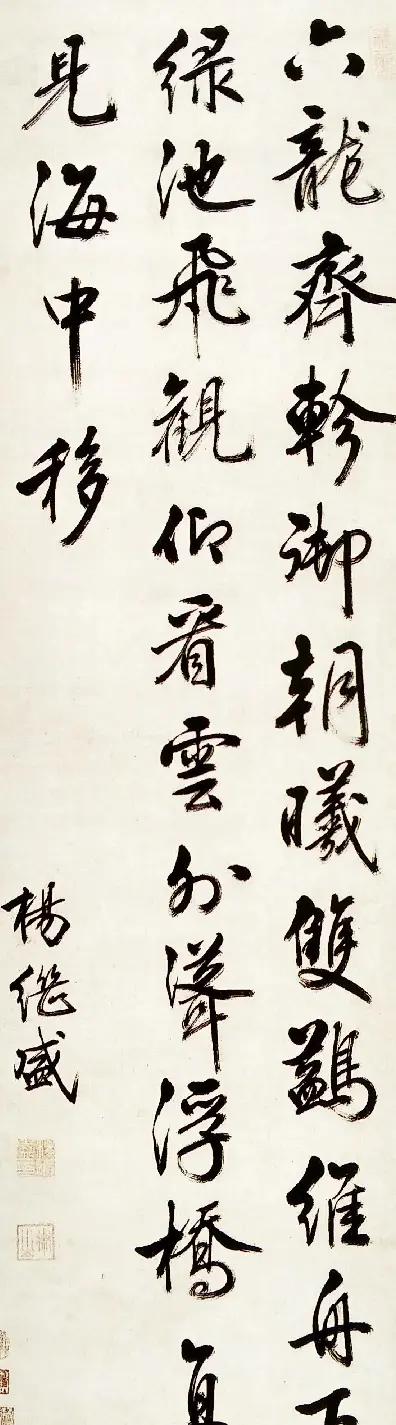 六龍齊軫御朝曦雙鷁維舟下
綠池飛觀仰看雲外聳浮橋直
見海中移
楊繼盛